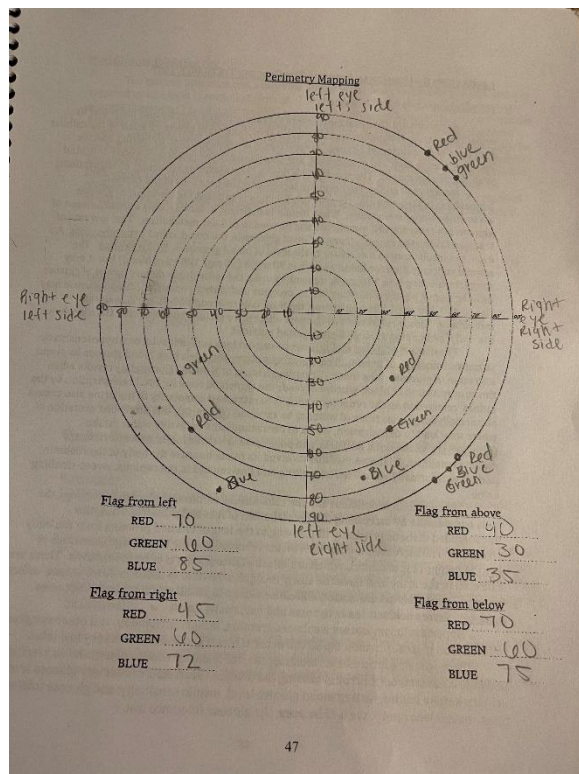 Perimetry Mapping
left eye
left side
90
Red
blue
green
80
70
60
50
40
30
20
10
Right eye
left side
90 80 70 60 50 40 30 20 10
Right
eye
Right
side
10
20
30
40
50
60
70
80
90
green
Red
Blue
Red
Green
Blue
Red
Blue
Green
left eye
right side
Flag from left
RED 70
GREEN 60
BLUE 85
Flag from right
RED 45
GREEN 60
BLUE 72
Flag from above
RED 40
GREEN 30
BLUE 35
Flag from below
RED 70
GREEN 60
BLUE 75
47